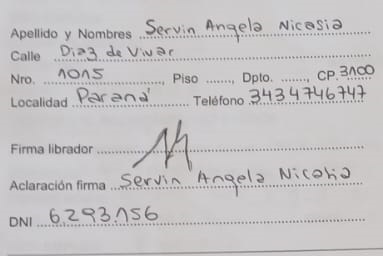 Apellido y Nombres Servin Angela Nicasia
Calle Diaz de Vivar
Nro. 1015, Piso ......, Dpto. ......, CP. 3100
Localidad Paraná Teléfono 3434746747
Firma librador
Aclaración firma Servin Angela Nicasia
DNI 6.293.156